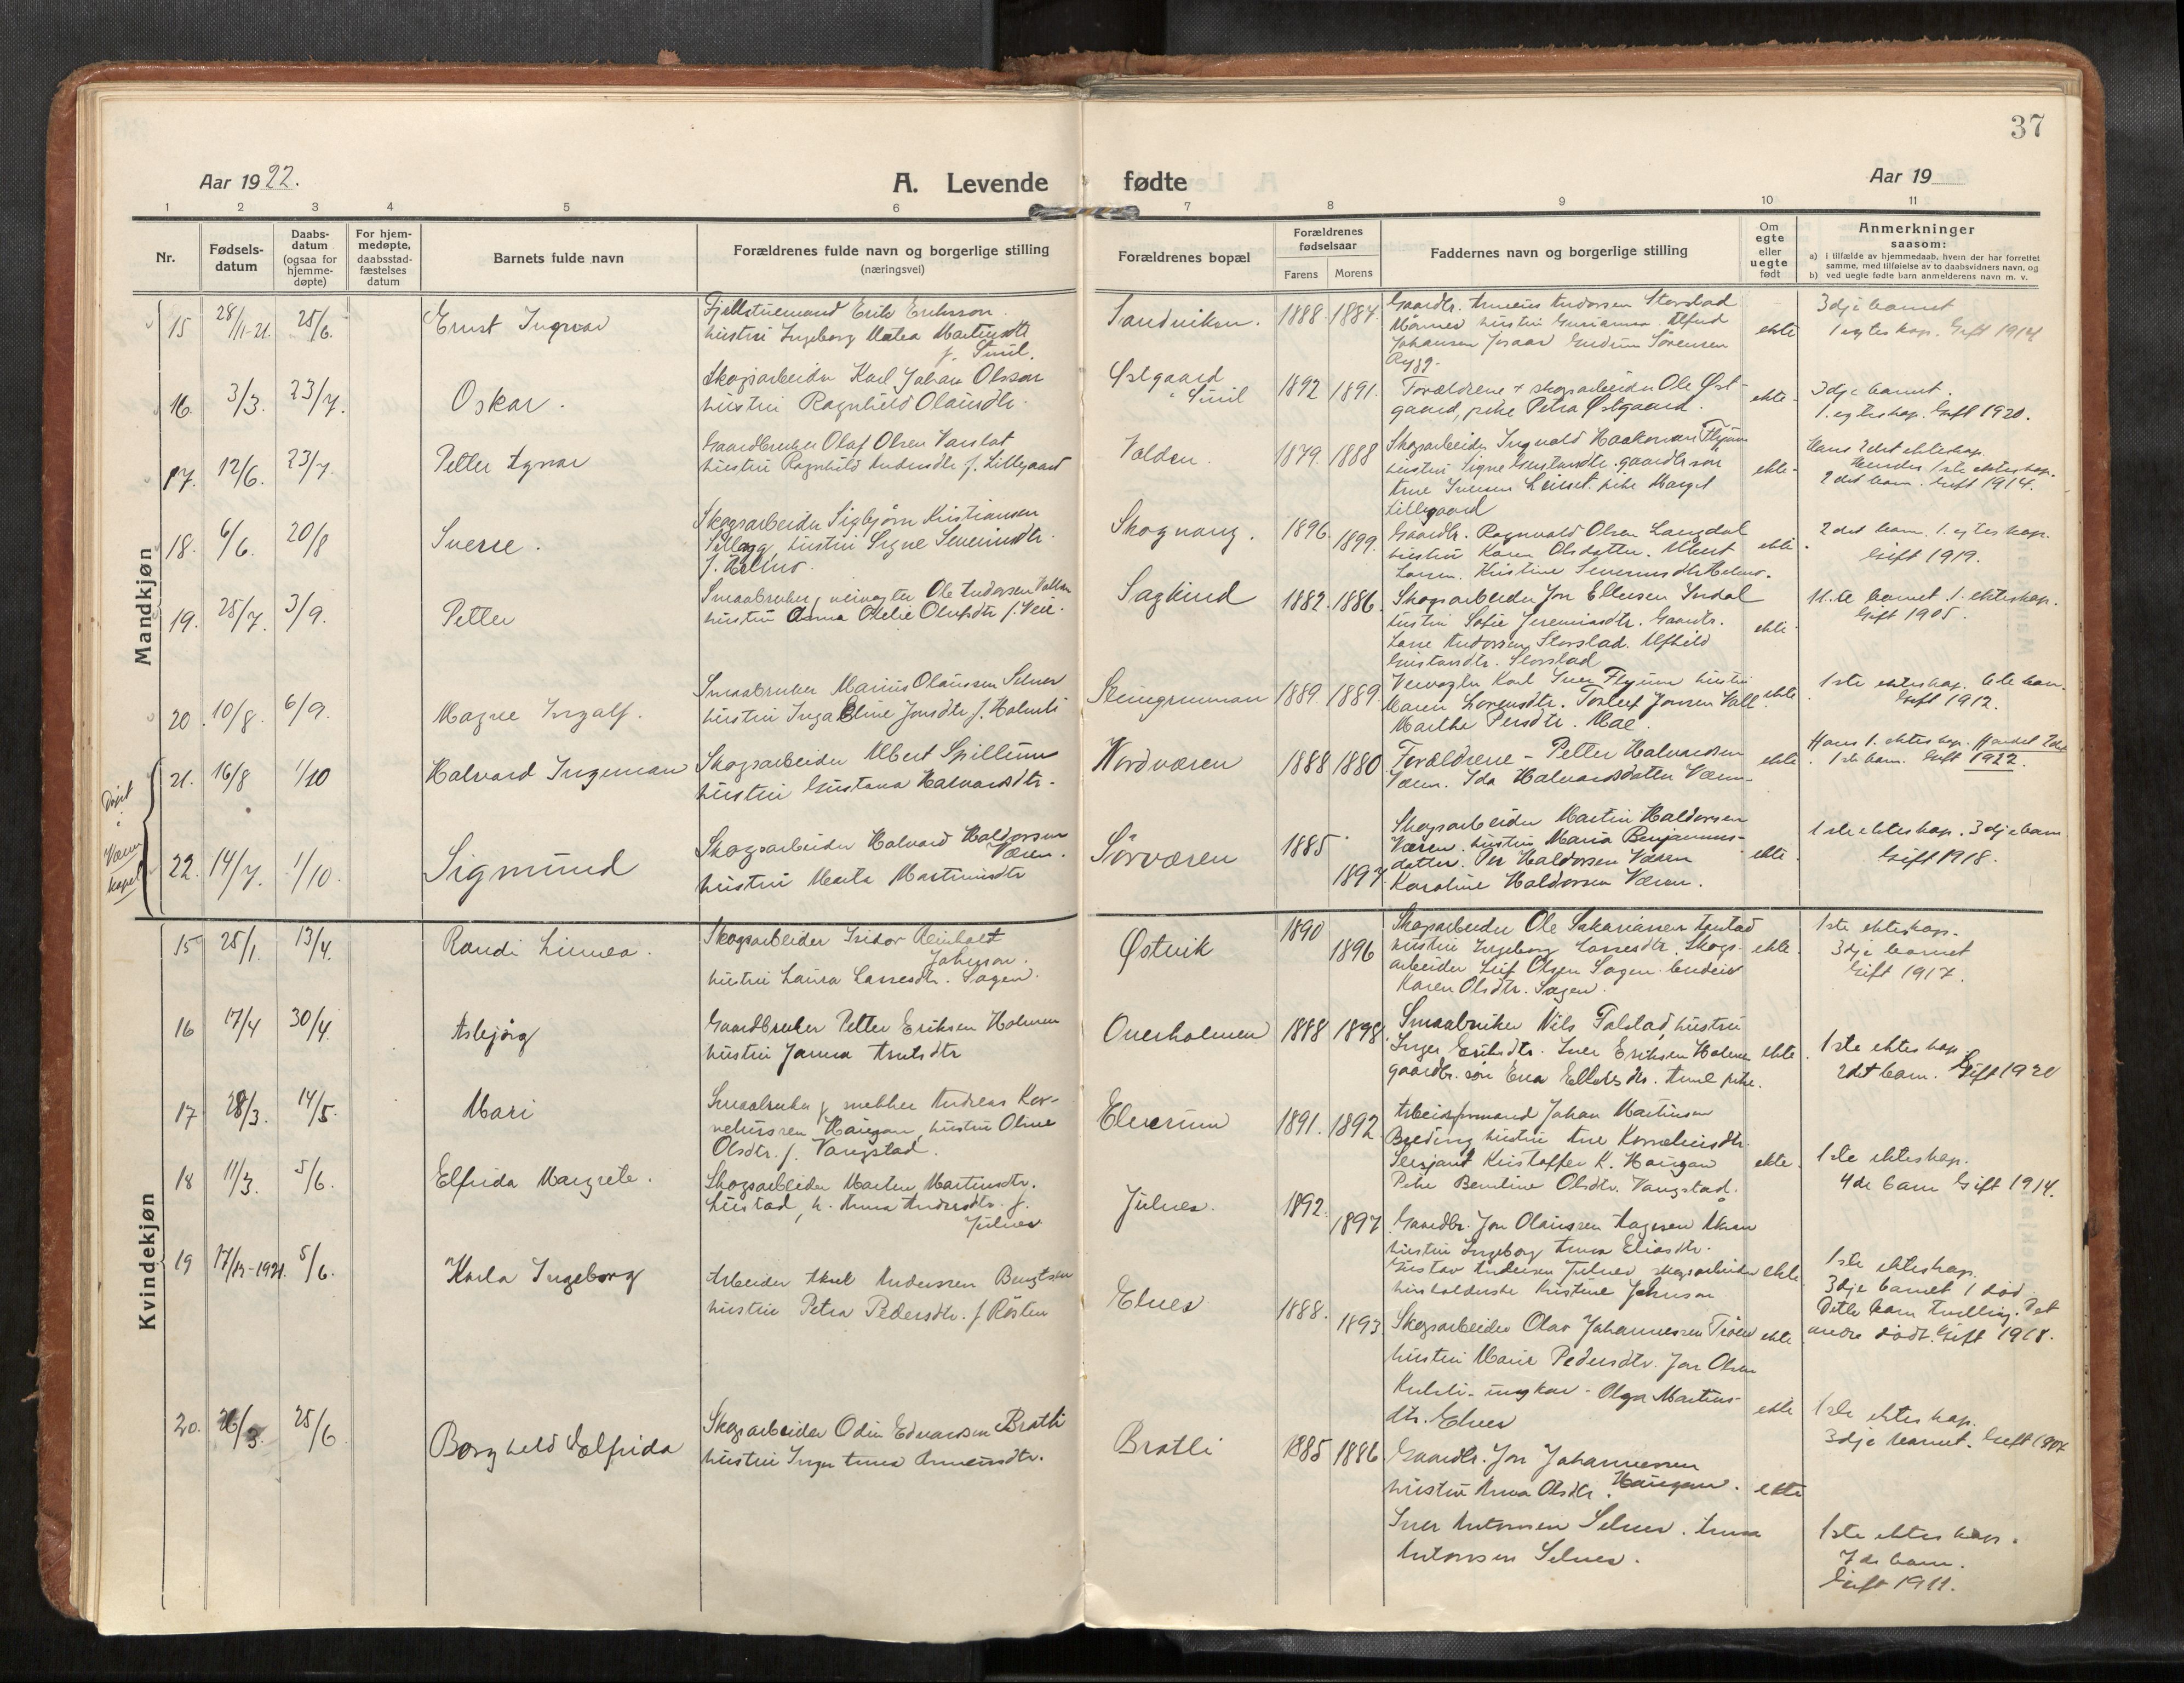 37
Aar 1922.
A. Levende fødte
Aar 19
1 2 3 4 5 6 7 8 9 10 11
Nr.
Fødsels-
datum
Daabs-
datum
(ogsaa for
hjemme-
døpte)
For hjem-
medøpte,
daabsstad-
fæstelses
datum
Barnets fulde navn
Forældrenes fulde navn og borgerlige stilling
(næringsvei)
Forældrenes bopæl
Forældrenes
fødselsaar
Farens Morens
Faddernes navn og borgerlige stilling
Om
egte
eller
uegte
født
Anmerkninger
saasom:
a) i tilfælde av hjemmedaab, hvem der har forrettet
samme, med tilføielse av to daabsvidners navn, og
b) ved uegte fødte barn anmelderens navn m. v.
Mandkjøn
15 28/11-21. 25/6. Ernst Ingvar
Fjellstuemand Erik Eriksson
hustru Ingeborg Matea Martinsdtr
Sandviken. 1888. 1884.
Gaardbr. Andersen Storstad
hustru
Johansen Gudrun Sørensen
Rygg.
ekte
3dje barnet
1 egteskap. Gift 1914
16. 3/3. 23/7. Oskar.
Skogsarbeider Karl Johan Olsson
hustru Ragnhild Olausdtr.
Østgaard
1892 1891.
Forældrene + skogsarbeider Ole Øst-
gaard, pike Petra Østgaard.
ekte
3dje barnet.
1. egteskap. Gift 1920.
17. 12/6. 23/7. Petter Agnar
Gaardbruker Olaf Olsen
hustru Ragnhild Andersdtr f. Lillegaard
Volden. 1879. 1888
Skogsarbeider Ingvald Haakonsen Flyum
hustru Signe Gustavsdtr. gaardbr søn
Arne Iversen pike Margit
Lillegaard
ekte
Hans 2det ekteskap.
Hendes 1ste ekteskap.
2det barn. Gift 1914.
18. 6/6. 20/8 Sverre.
Skogsarbeider Sigbjørn Kristiansen
hustru Signe Severinsdtr.
Skogvang. 1896. 1899.
Gaardbr. Ragnvald Olsen Langdal
hustru Karen Olsdatter. Albert
Larsen. Kristine Severinsdtr
ekte
2det barn. 1. egteskap.
Gift 1919.
19. 25/7. 3/9. Petter
Smaabruker, veivogter Ole Andersen
hustru Anna Otelie Olufsdtr
Saglund 1882. 1886.
Skogsarbeider Jon Ellevsen
hustru Sofie Jeremiasdtr. Gaardbr.
Andersen Storstad. Alfhild
Gustavsdtr. Storstad
ekte
11.te barnet 1. ekteskap.
Gift 1905.
20. 10/8. 6/9. Magne Ingolf.
Smaabruker Marius Olaussen Selnes
hustru Inga Eline Jonsdtr f. Holmli
1889. 1889
Veivogter Karl Iver Flyum hustru
Maren Lorensdtr. Torleif Jonsen
Marthe Persdtr. Moe.
ekte
1ste ekteskap. 6te barn.
Gift 1912.
21. 16/8 1/10 Halvard Ingeman
Skogsarbeider Albert Spillum
hustru Gustava Halvardsdtr.
Nordværen 1888 1880
Forældrene - Petter Halvardsen
Væren. Ida Halvardsdatter Væren
ekte
Hans 1. ekteskap. Hendes 2det
1ste barn. Gift 1922.
Døpt
i
Væren
kapel
22. 14/7. 1/10. Sigmund
Skogsarbeider Halvard Haldorsen
Væren.
hustru Marta Martinusdtr
Sørværen 1885 1897
Skogsarbeider Martin Haldorsen
Væren. hustru Maria Benjamins-
datter. Per Haldorsen Væren
Karoline Haldorsen Væren.
ekte
1ste ekteskap. 3dje barn
Gift 1918.
Kvindekjøn
15 25/1. 13/4. Randi Linnea.
Skogsarbeider Isidor Reinholdt
Johnson.
hustru Laura Larsedtr. Sagen.
Østvik 1890 1896
Skogsarbeider Ole Sakariassen
hustru Ingeborg Larsesdtr. Skogs-
arbeider Leif Olsen Sagen
Karen Olsdtr. Sagen.
ekte
1ste ekteskap.
3dje barnet
Gift 1917.
16 17/4 30/4. Asbjørg
Gaardbruker Petter Eriksen Holmen
hustru Janna Arntsdtr
Overholmen 1888 1898.
Smaabruker Nils Folstad, hustru
Inger Eriksdtr. Iver Eriksen Holmen
gaardbr. søn
ekte
1ste ekteskap.
2det barn. Gift 1920
17 28/3. 14/5. Mari
Smaabruker Andreas Kor-
neliussen Haugan, hustru Oline
Olsdtr. f. Vangstad.
Elverum 1891. 1892
Arbeidsformand Johan Martinsen
hustru Ane Korneliusdtr.
Sersjant Kristoffer K. Haugan
Pike Berntine Olsdtr. Vangstad.
ekte
1ste ekteskap.
4de barn Gift 1914.
18 11/3. 5/6. Elfrida Margrete.
Skogsarbeider Morten Martinsdtr.
h. Anna Andersdtr. f.
Julnes
Julnes. 1892. 1897
Gaardbr. Jon Olaussen
hustru Ingeborg Anna Eliasdtr.
Gustav Andersen Julnes skogsarbeider
husholderske Kristine Johnson
ekte
1ste ekteskap.
3dje barnet 1 død
19 17/12-1921. 5/6. Karla Ingeborg
Arbeider Aksel Anderssen Bengtson
hustru Petra Pedersdtr. f. Røsten
Elnes 1888. 1893
Skogsarbeider Olav Johannessen
hustru Marie Pedersdtr. Jon Olsen
ungkar - Olga Martins-
dtr. Elnes
ekte
Dette barn tvilling. Det
andre dødt. Gift 1918.
20. 26/3. 25/6 Borghild Solfrida
Skogsarbeider Odin Edvardsen Bratli
hustru Inga Anna
Bratli 1885 1886
Gaardbr. Jon Johannessen
hustru Anna Olsdtr. Haugan.
Iver Antonsen Selnes. Anna
Antonsen Selnes.
ekte
ekte
1ste ekteskap.
3dje barnet.
1ste ekteskap.
7de barn.
Gift 1911.